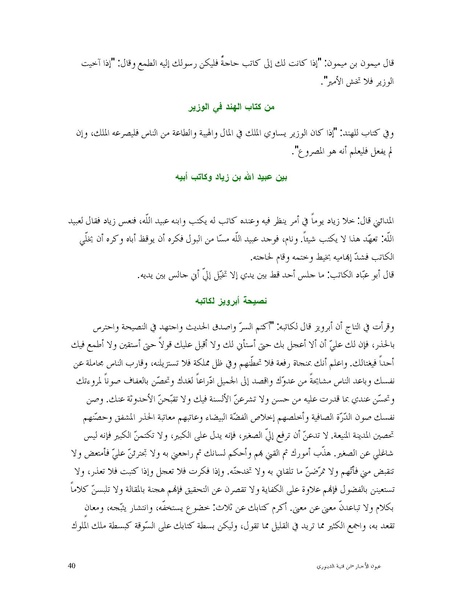 قال ميمون بن ميمون: "إذا كانت لك إلى كاتب حاجةٌ فليكن رسولك إليه الطمع وقال: "إذا آخيت
الوزير فلا تخش الأمير".
من كتاب الهند في الوزير
وفي كتاب للهند: "إذا كان الوزير يساوي الملك في المال والهيبة والطاعة من الناس فليصرعه الملك، وإن
لم يفعل فليعلم أنه هو المصروع".
بين عبيد الله بن زياد وكاتب أبيه
المدائني قال: خلا زياد يوماً في أمر ينظر فيه وعنده كاتب له يكتب وابنه عبيد اللّه، فنعس زياد فقال لعبيد
اللّه: تعهّد هذا لا يكتب شيئاً. ونام، فوجد عبيد اللّه مسّا من البول فكره أن يوقظ أباه وكره أن يخلّي
الكاتب فشدّ إبهاميه بخيط وختمه وقام لحاجته.
قال أبو عبّاد الكاتب: ما جلس أحد قط بين يدي إلا تخيّل إليّ أني جالس بين يديه.
نصيحة أبرويز لكاتبه
وقرأت في التاج أن أبرويز قال لكاتبه: "أكتم السرّ واصدق الحديث واجتهد في النصيحة واحترس
بالحذر، فإن لك عليّ أن ألا أعجل بك حتى أستأني لك ولا أقبل عليك قولاً حتى أستقين ولا أطمع فيك
أحداً فيغتالك. واعلم أنك بمنجاة رفعة فلا تحطّنهم وفي ظل مملكة فلا تستزيلنه، وقارب الناس مجاملة عن
نفسك وباعد الناس مشايحةً من عدوّك واقصد إلى الجميل ادّراعاً لغدك وتحصّن بالعفاف صوناً لمروءتك
وتحسّن عندي بما قدرت عليه من حسن ولا تشرعنّ الألسنة فيك ولا تقبّحنّ الأحدوثة عنك. وصن
نفسك صون الدّرّة الصافية وأخلصهم إخلاص الفضّة البيضاء وعاتبهم معاتبة الحذر المشفق وحصّنهم
تحصين المدينة المنيعة. لا تدعنّ أن ترفع إليّ الصغير، فإنه يدلّ على الكبير، ولا تكتمنّ الكبير فإنه ليس
شاغلي عن الصغير. هذّب أمورك ثم القني بهم وأحكم لسانك ثم راجعني به ولا تجترئنّ عليّ فأمتعض ولا
تنقبض مني فأتّهم ولا تمرّضنّ ما تلقاني به ولا تخدجنّه. وإذا فكرت فلا تعجل وإذا كتبت فلا تعذر، ولا
تستعينن بالفضول فإنهم علاوة على الكفاية ولا تقصرن عن التحقيق فإنهم هجنة بالمقالة ولا تلبسنّ كلاماً
بكلام ولا تباعدنّ معنى عن معنى. أكرم كتابك عن ثلاث: خضوع يستخفّه، وانتشار يثبّجه، ومعان
تقعد به، واجمع الكثير مما تريد في القليل مما تقول، وليكن بسطة كتابك على السّوقة كبسطة ملك الملوك
عيون الأخبار-ابن قتيبة الدينوري
40